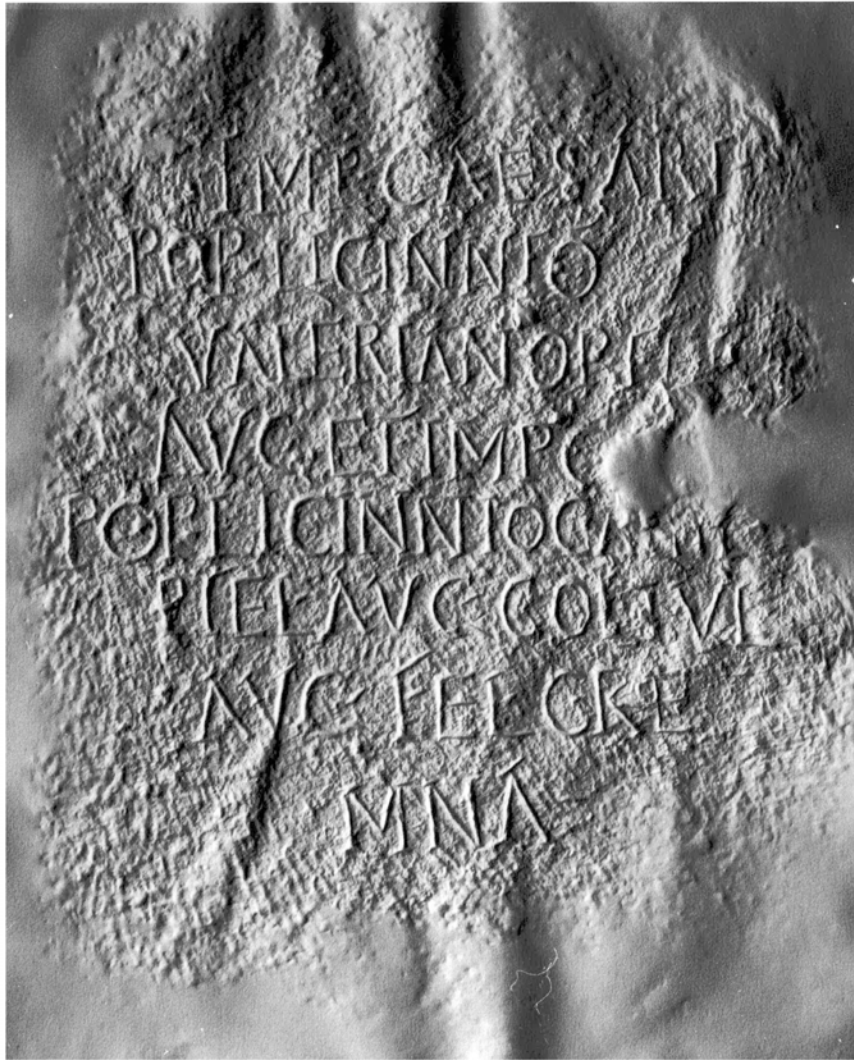 IMP CAESARI
POP LICINNIO
VALERIANO
AVG ET IMP C
POP LICINNIO
P F EL AVG COL IVL
AVG FEL CRE
MNA